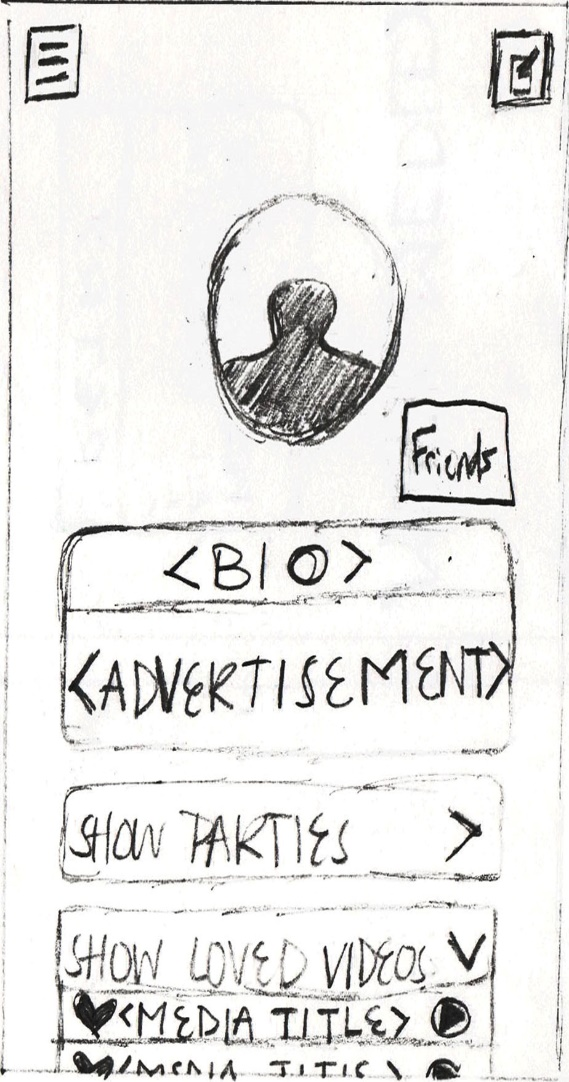 Friends
<BIO>
<ADVERTISEMENT>
SHOW PARTIES >
SHOW LOVED VIDEOS
<MEDIA TITLE>
<MEDIA TITLE>